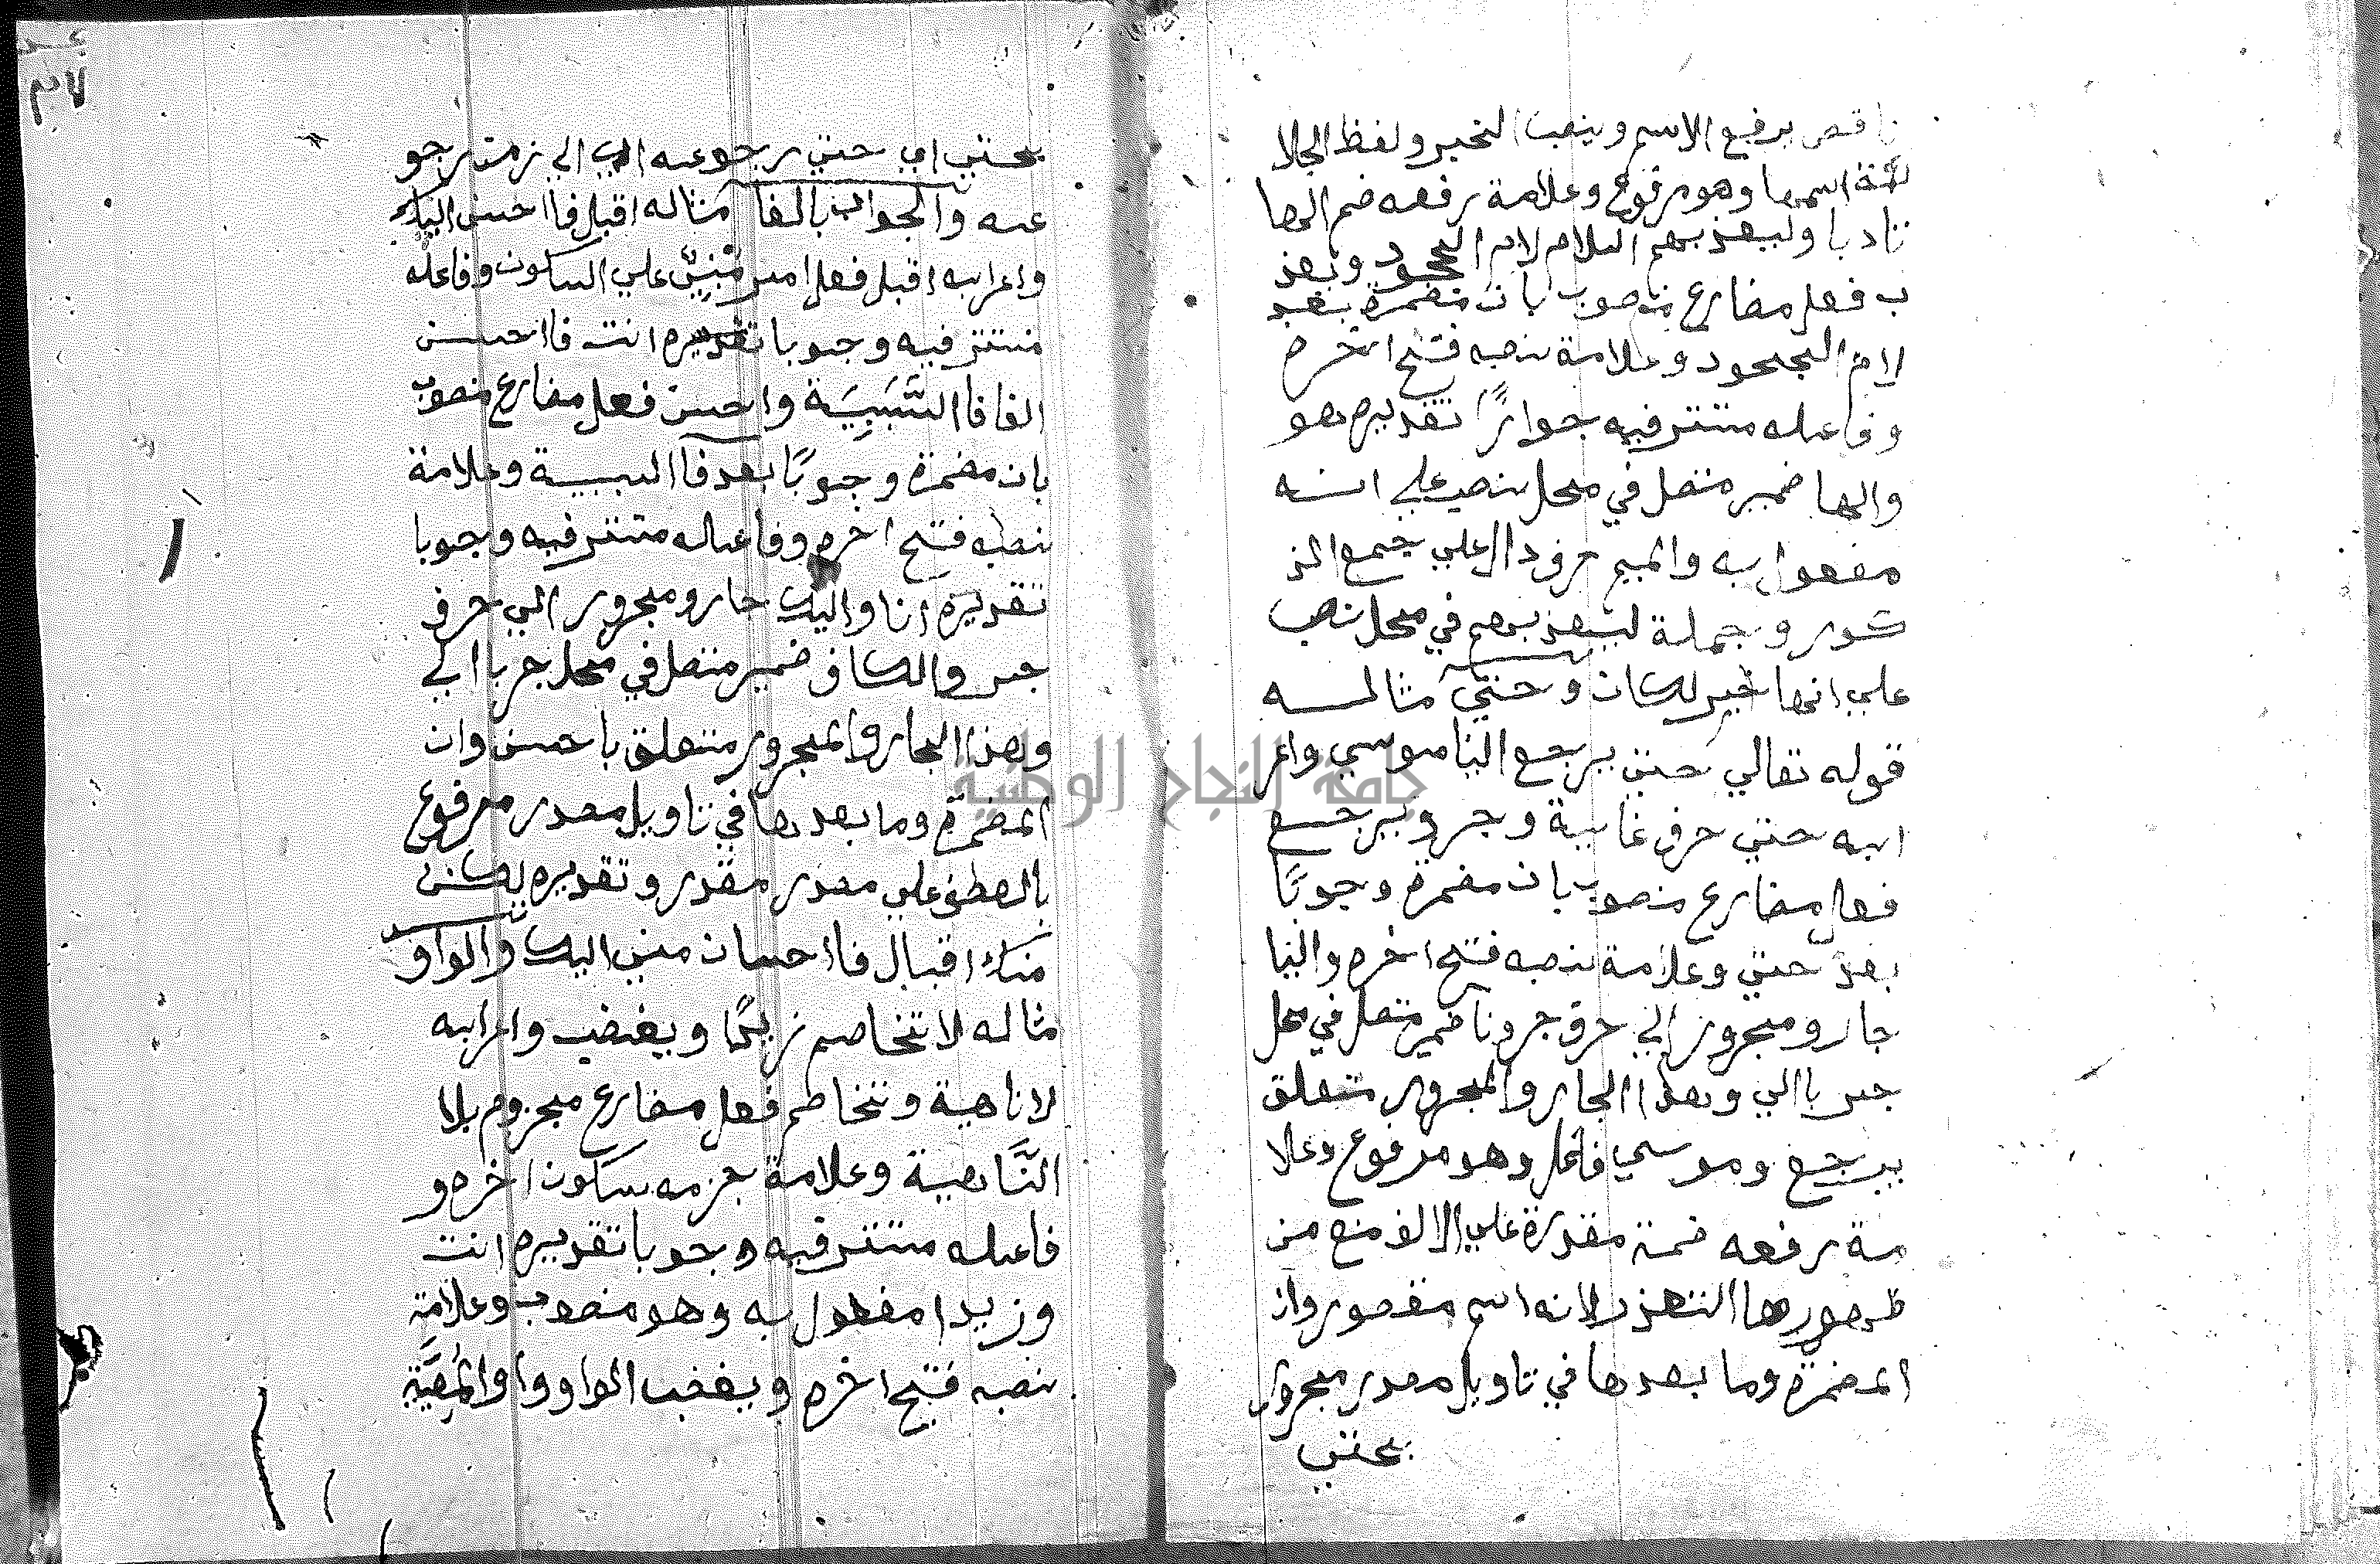 ناقص يرفع الاسم وينصب الخبر ولفظ الجلا
لة اسمها وهو مرفوع وعلامة رفعه ضم الها
تادبا وليعذبهم اللام لام الجحود ويعذ
ب فعل مضارع منصوب بان مضمرة بعد
لام الجحود وعلامة نصبه فتح اخره
وفاعله مستتر فيه جوازًا تقديره هو
والها ضمير متصل في محل نصب علي انه
مفعول به والميم حرف دال علي جمع الذ
كور وجملة ليعذبهم في محل نصب
علي انها خبر لكان وحتي مثالــه
قوله تعالي حتي يرجع الينا موسي واعر
ابه حتي حرف غاية وجر ويرجــع
فعل مضارع منصوب بان مضمرة وجوبًا
بعد حتي وعلامة نصبه فتح اخره والينا
جار ومجرور الي حرف جر ونا ضمير متصل في محل
جر باالي وهذا الجار والمجرور متعلق
بيرجع وموسي فاعل وهو مرفوع وعلا
مة رفعه ضمة مقدرة علي الالف منع من
ظهورها التعذر لانه اسم مقصور وان
المضمرة وما بعدها في تاويل مصدر مجرور
بحتي
٢٧
بحتي اي حتي رجوعه الي الي زمن رجو
عه والجواب بالفا مثاله اقبل فااحسن اليك
واعرابه اقبل فعل امر مبني علي السكون وفاعله
مستتر فيه وجوبا تقديره انت فااحسن
الفا فاالسَّبَبِيَّة واحسن فعل مضارع منصوب
بان مضمرة وجوبًا بعد فاالسببية وعلامة
نصبه فتح اخره وفاعله مستتر فيه وجوبا
تقديره انا واليك جار ومجرور الي حرف
جر والكاف ضمير متصل في محل جر باالي
وهذا الجار والمجرور متعلق باحسن وان
المضمرة وما بعدها في تاويل مصدر مرفوع
بالعطف علي مصدر مقدر وتقديره ليكن
منك اقبال فااحسان مني اليك والواو
مثاله لا تخاصم زيدًا ويغضب واعرابه
لا ناهية وتخاصم فعل مضارع مجزوم بلا
النَّاهية وعلامة جزمه سكون اخره و
فاعله مستتر فيه وجوبا تقديره انت
وزيدا مفعول به وهو منصوب وعلامة
نصبه فتح اخره ويغضب الواو واوالمَعِيَّة
جامعة النجاح الوطنية